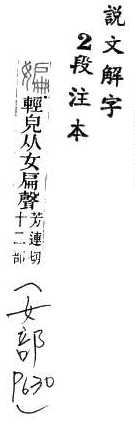 說文解字
2段注本
媥輕皃从女扁聲芳連切十二部
(女部
P630)